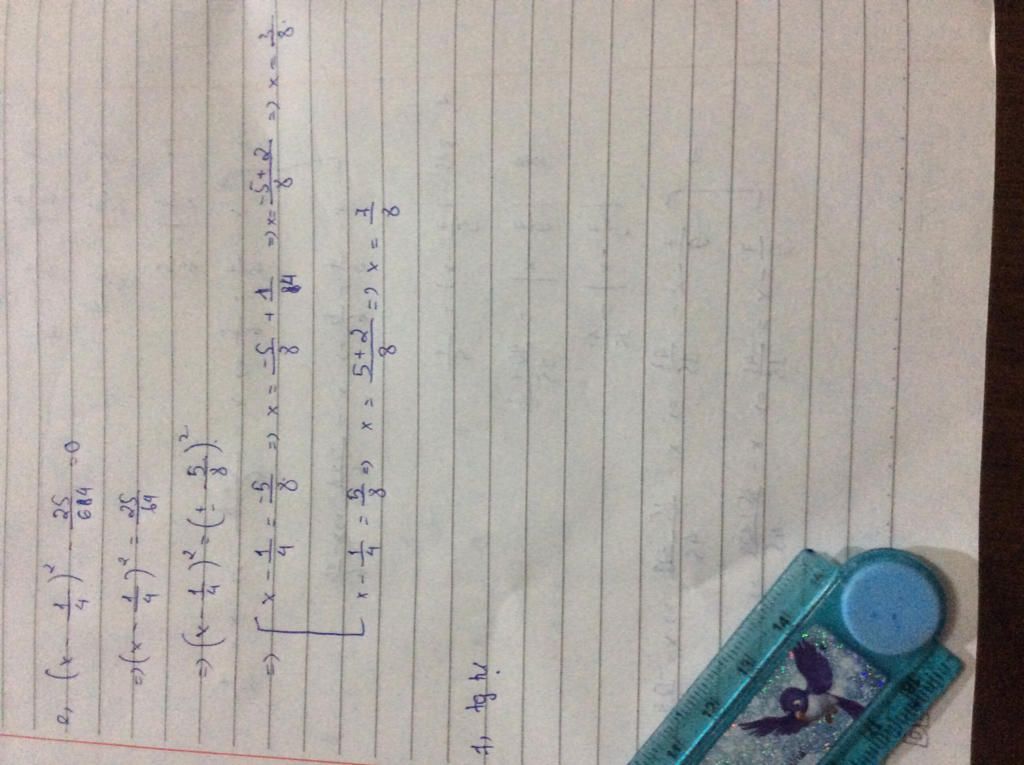 e, (x - 1/4)² - 25/64 = 0
=> (x - 1/4)² = 25/64
=> (x - 1/4)² = (± 5/8)²
=> [ x - 1/4 = -5/8 => x = -5/8 + 1/4 => x = -5+2/8 => x = 3/8.
x - 1/4 = 5/8 => x = 5+2/8 => x = 7/8
f, tg tự.
11
12
13
14